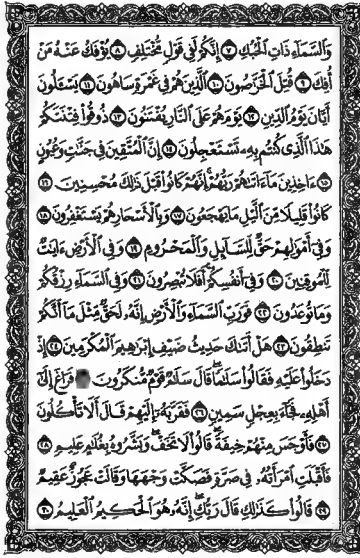 وَالسَّمَاءِ ذَاتِ الْحُبُكِ ٧ إِنَّكُمْ لَفِي قَوْلٍ مُّخْتَلِفٍ ٨ يُؤْفَكُ عَنْهُ مَنْ
أُفِكَ ٩ قُتِلَ الْخَرَّاصُونَ ١٠ الَّذِينَ هُمْ فِي غَمْرَةٍ سَاهُونَ ١١ يَسْـَٔلُونَ
أَيَّانَ يَوْمُ الدِّينِ ١٢ يَوْمَ هُمْ عَلَى النَّارِ يُفْتَنُونَ ١٣ ذُوقُوا فِتْنَتَكُمْ
هَٰذَا الَّذِي كُنتُم بِهِ تَسْتَعْجِلُونَ ١٤ إِنَّ الْمُتَّقِينَ فِي جَنَّاتٍ وَعُيُونٍ
١٥ ءَاخِذِينَ مَا ءَاتَىٰهُمْ رَبُّهُمْ إِنَّهُمْ كَانُوا قَبْلَ ذَٰلِكَ مُحْسِنِينَ ١٦
كَانُوا قَلِيلًا مِّنَ الَّيْلِ مَا يَهْجَعُونَ ١٧ وَبِالْأَسْحَارِ هُمْ يَسْتَغْفِرُونَ ١٨
وَفِي أَمْوَٰلِهِمْ حَقٌّ لِّلسَّائِلِ وَالْمَحْرُومِ ١٩ وَفِي الْأَرْضِ ءَايَٰتٌ
لِّلْمُوقِنِينَ ٢٠ وَفِي أَنفُسِكُمْ أَفَلَا تُبْصِرُونَ ٢١ وَفِي السَّمَاءِ رِزْقُكُمْ
وَمَا تُوعَدُونَ ٢٢ فَوَرَبِّ السَّمَاءِ وَالْأَرْضِ إِنَّهُ لَحَقٌّ مِّثْلَ مَا أَنَّكُمْ
تَنطِقُونَ ٢٣ هَلْ أَتَىٰكَ حَدِيثُ ضَيْفِ إِبْرَٰهِيمَ الْمُكْرَمِينَ ٢٤ إِذْ
دَخَلُوا عَلَيْهِ فَقَالُوا سَلَٰمًا قَالَ سَلَٰمٌ قَوْمٌ مُّنكَرُونَ فَرَاغَ إِلَىٰ
أَهْلِهِ فَجَاءَ بِعِجْلٍ سَمِينٍ ٢٦ فَقَرَّبَهُ إِلَيْهِمْ قَالَ أَلَا تَأْكُلُونَ
٢٧ فَأَوْجَسَ مِنْهُمْ خِيفَةً قَالُوا لَا تَخَفْ وَبَشَّرُوهُ بِغُلَٰمٍ عَلِيمٍ ٢٨
فَأَقْبَلَتِ امْرَأَتُهُ فِي صَرَّةٍ فَصَكَّتْ وَجْهَهَا وَقَالَتْ عَجُوزٌ عَقِيمٌ
٢٩ قَالُوا كَذَٰلِكِ قَالَ رَبُّكِ إِنَّهُ هُوَ الْحَكِيمُ الْعَلِيمُ ٣٠